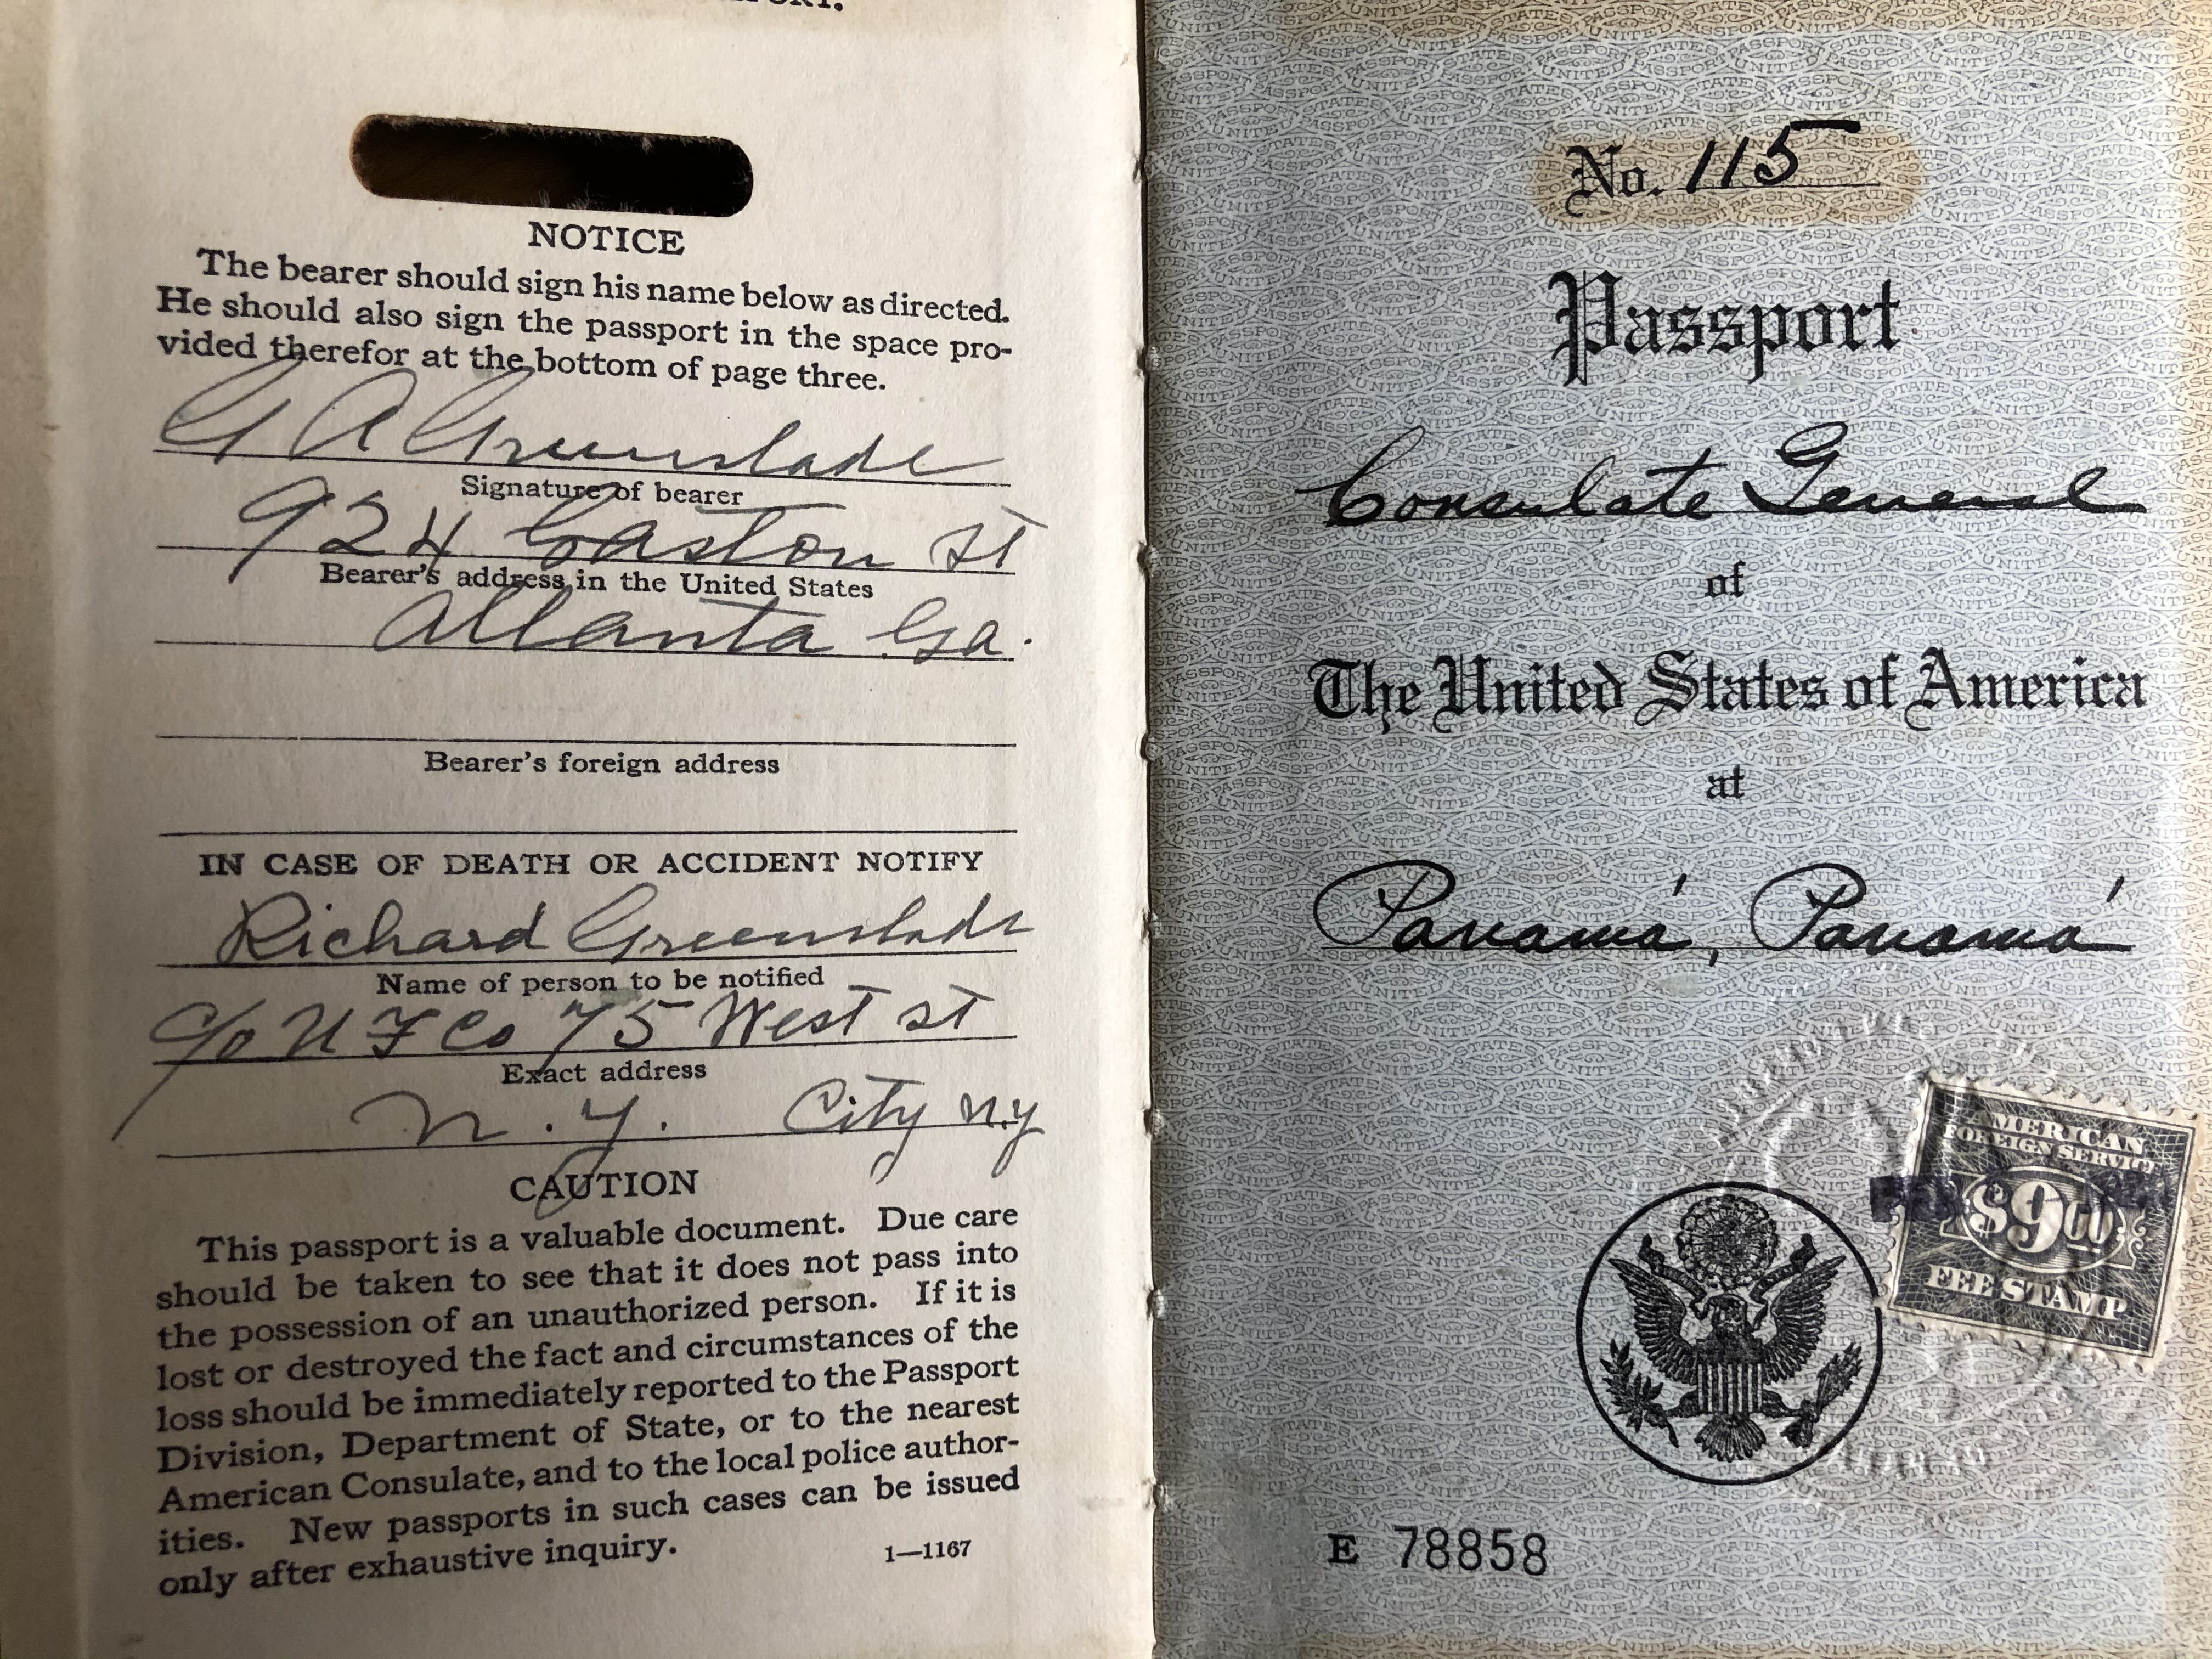 NOTICE
The bearer should sign his name below as directed.
He should also sign the passport in the space pro-
vided therefor at the bottom of page three.
G A Greenslade
Signature of bearer
924 Gaston St
Bearer's address in the United States
Atlanta Ga.
Bearer's foreign address
IN CASE OF DEATH OR ACCIDENT NOTIFY
Richard Greenslade
Name of person to be notified
c/o U F Co 75 West St
Exact address
N. Y. City N.Y
CAUTION
This passport is a valuable document. Due care
should be taken to see that it does not pass into
the possession of an unauthorized person. If it is
lost or destroyed the fact and circumstances of the
loss should be immediately reported to the Passport
Division, Department of State, or to the nearest
American Consulate, and to the local police author-
ities. New passports in such cases can be issued
only after exhaustive inquiry.
1—1167
No. 115
Passport
Consulate General
of
The United States of America
at
Panamá, Panamá
AMERICAN
FOREIGN SERVICE
$9.00
FEE STAMP
E 78858